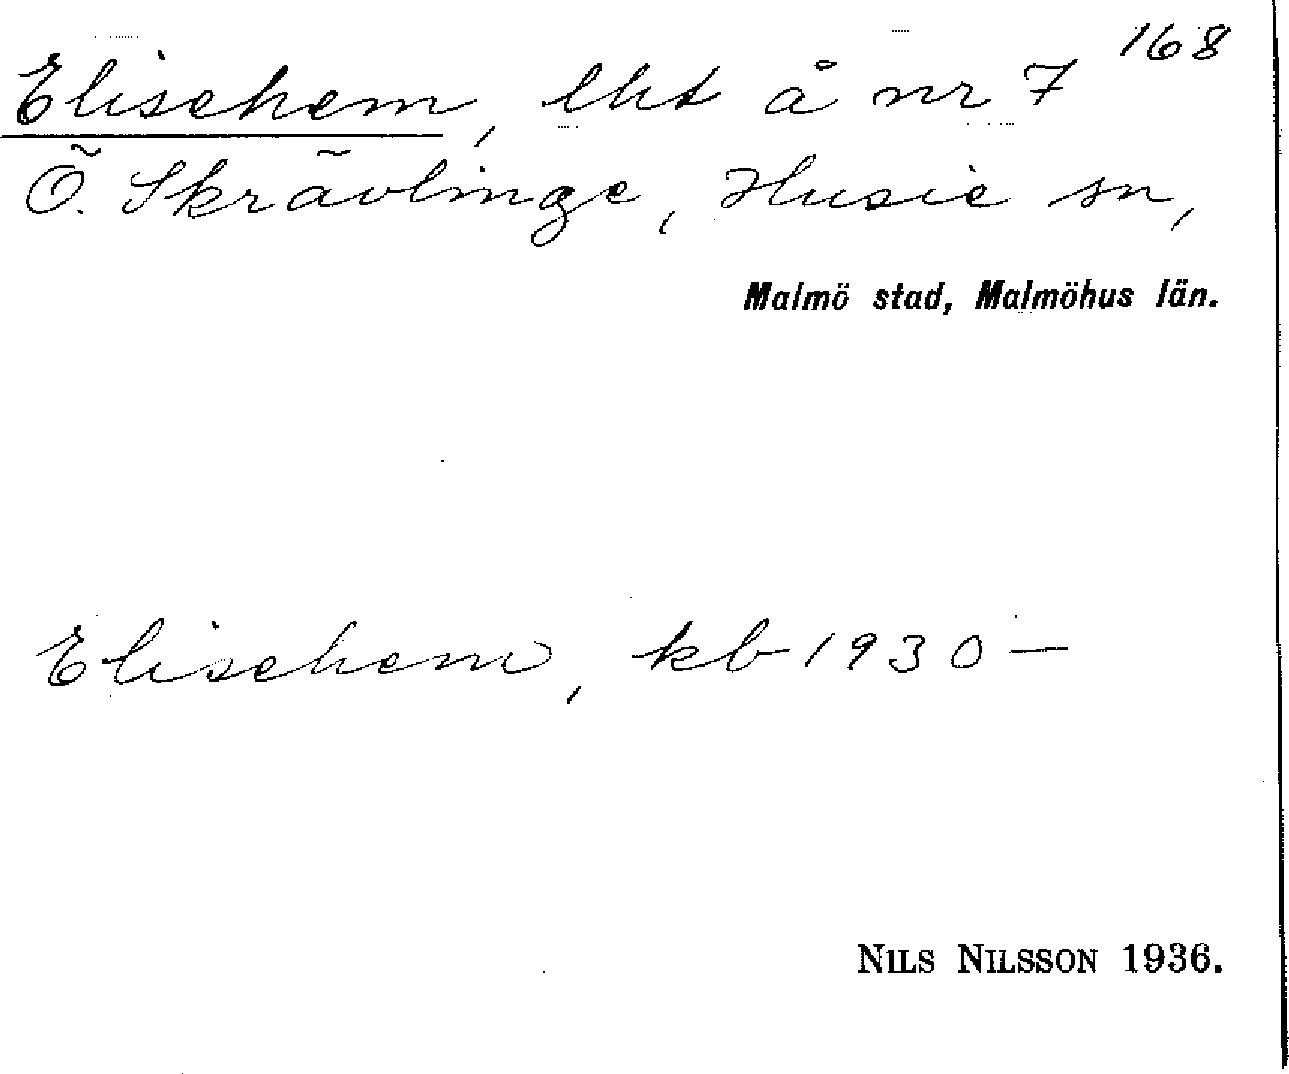 168
Elisehem, lht å nr 7
Ö. Skrävlinge, Husie sn,
Malmö stad, Malmöhus län.
Elisehem, kb 1930—
NILS NILSSON 1936.